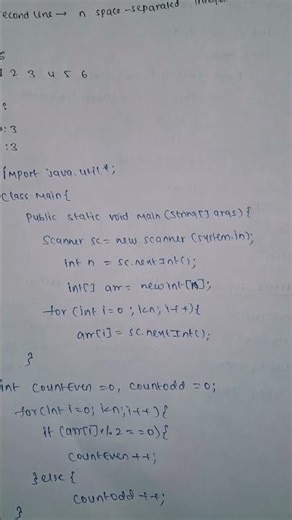 second line → n space-separated
1 2 3 4 5 6
:
: 3
: 3
import java.util*;
class Main{
Public static void main (String[] args) {
Scanner sc= new scanner (system.in);
int n = sc.nextInt();
int[] arr = new int [n];
for (int i=0 ; i<n; i++){
arr[i] = sc.nextInt();
}
int countEven =0, countodd =0;
for(int i=0; i<n; i++){
if (arr[i]%2==0){
countEven ++;
}else {
countodd ++;
}